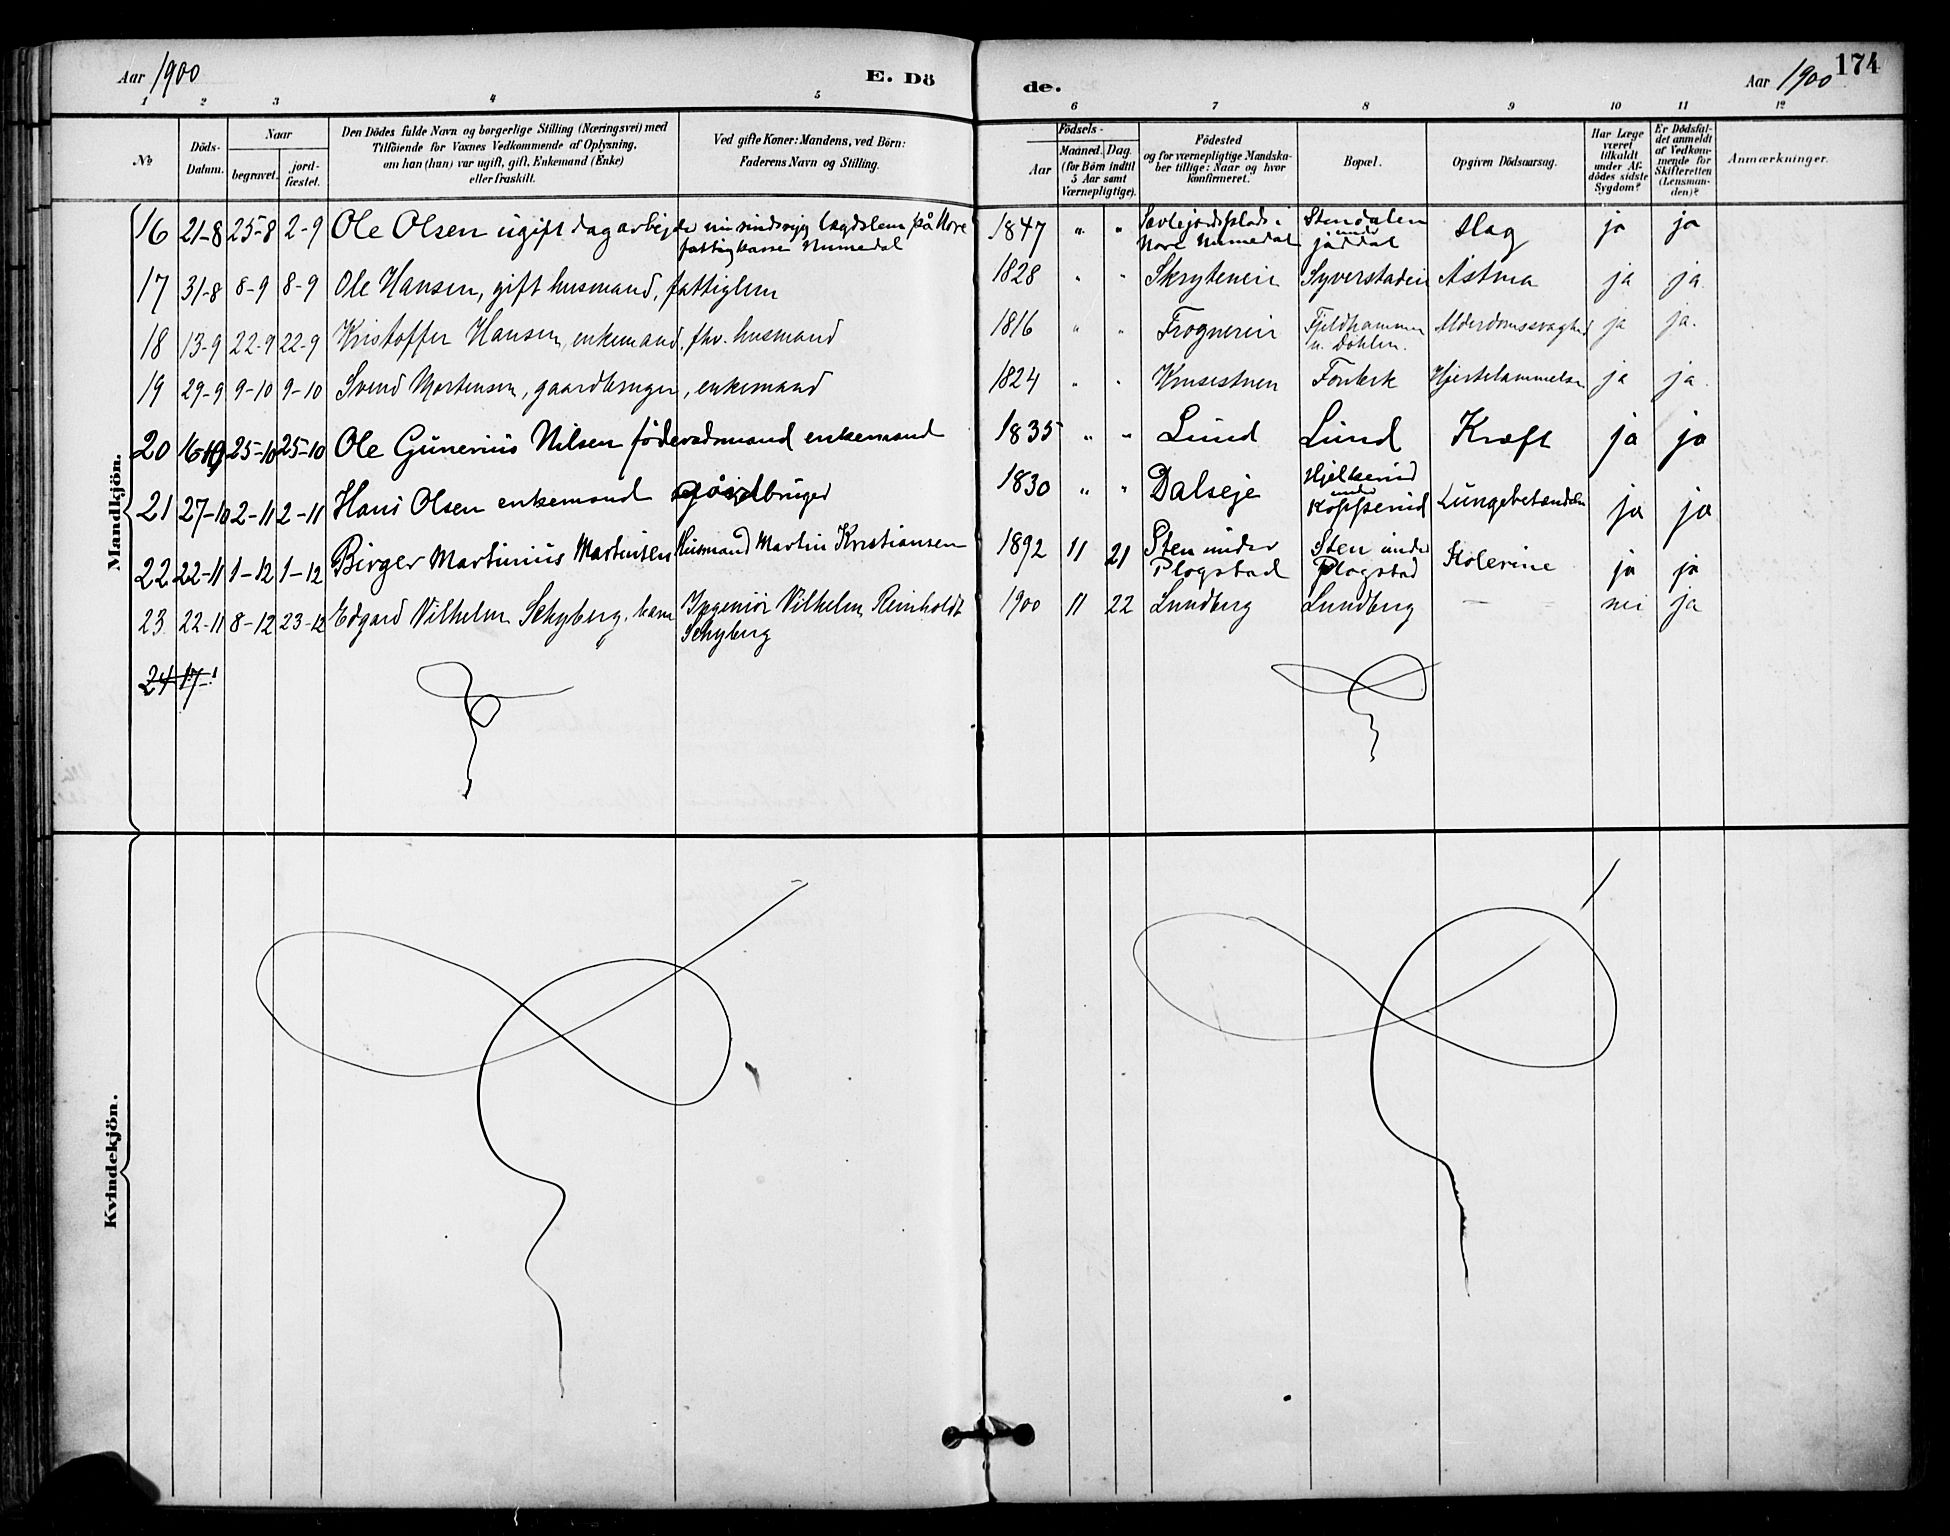 Aar 1900
E. Dö
de.
Aar 1900
174
1 2 3 4 5 6 7 8 9 10 11 12
No
Döds-
Datum.
Naar
begravet.
jord-
fæstet.
Den Dödes fulde Navn og borgerlige Stilling (Næringsvei) med
Tilföiende for Voxnes Vedkommende af Oplysning,
om han (hun) var ugift, gift, Enkemand (Enke)
eller fraskilt.
Ved gifte Koner: Mandens, ved Börn:
Faderens Navn og Stilling.
Födsels-
Aar
Maaned. Dag.
(for Börn indtil
5 Aar samt
Værnepligtige).
Födested
og for værnepligtige Mandska-
ber tillige: Naar og hvor
konfirmeret.
Bopæl.
Opgiven Dödsaarsag.
Har Læge
været
tilkaldt
under Af-
dödes sidste
Sygdom?
Er Dödsfal-
det anmeldt
af Vedkom-
mende for
Skifteretten
(Lensman-
den)?
Anmærkninger.
Mandkjön.
16 21-8 25-8 2-9 Ole Olsen ugift dagarbejder sindssyg lægdslem på Nore
fattigkasse Numedal
1847 " " plads i Nore Numedal Stendalen under jåddal Slag ja ja
17 31-8 8-9 8-9 Ole Hansen, gift husmand, fattiglem 1828 " " Skryteneie Syverstadeie Astma ja ja
18 13-9 22-9 22-9 Kristoffer Hansen, enkemand, fhv. husmand 1816 " " Frognereie Fjeldhammer u. Dohlen. Alderdomssvaghed ja ja.
19 29-9 9-10 9-10 Svend Mortensen, gaardbruger, enkemand 1824 " " Fonbek Hjertelammelse ja ja.
20 16-10 25-10 25-10 Ole Gunerius Nilsen föderådsmand enkemand 1835 " " Lund Lund Kræft ja ja
21 27-10 2-11 2-11 Hans Olsen enkemand gårdbruger 1830 " " Dalseje Hjelkerud under Kopperud Lungebetændelse ja ja
22 22-11 1-12 1-12 Birger Martinius Martinsen Husmand Martin Kristiansen 1892 11 21 Sten under Plogstad Sten under Plogstad Kolerine ja ja
23 22-11 8-12 23-12 Edgard Vilhelm Schyberg, barn Ingeniør Vilhelm Reinholdt
Schyberg
1900 11 22 Lundberg Lundberg — — nei ja
24 17-1
Kvindekjön.